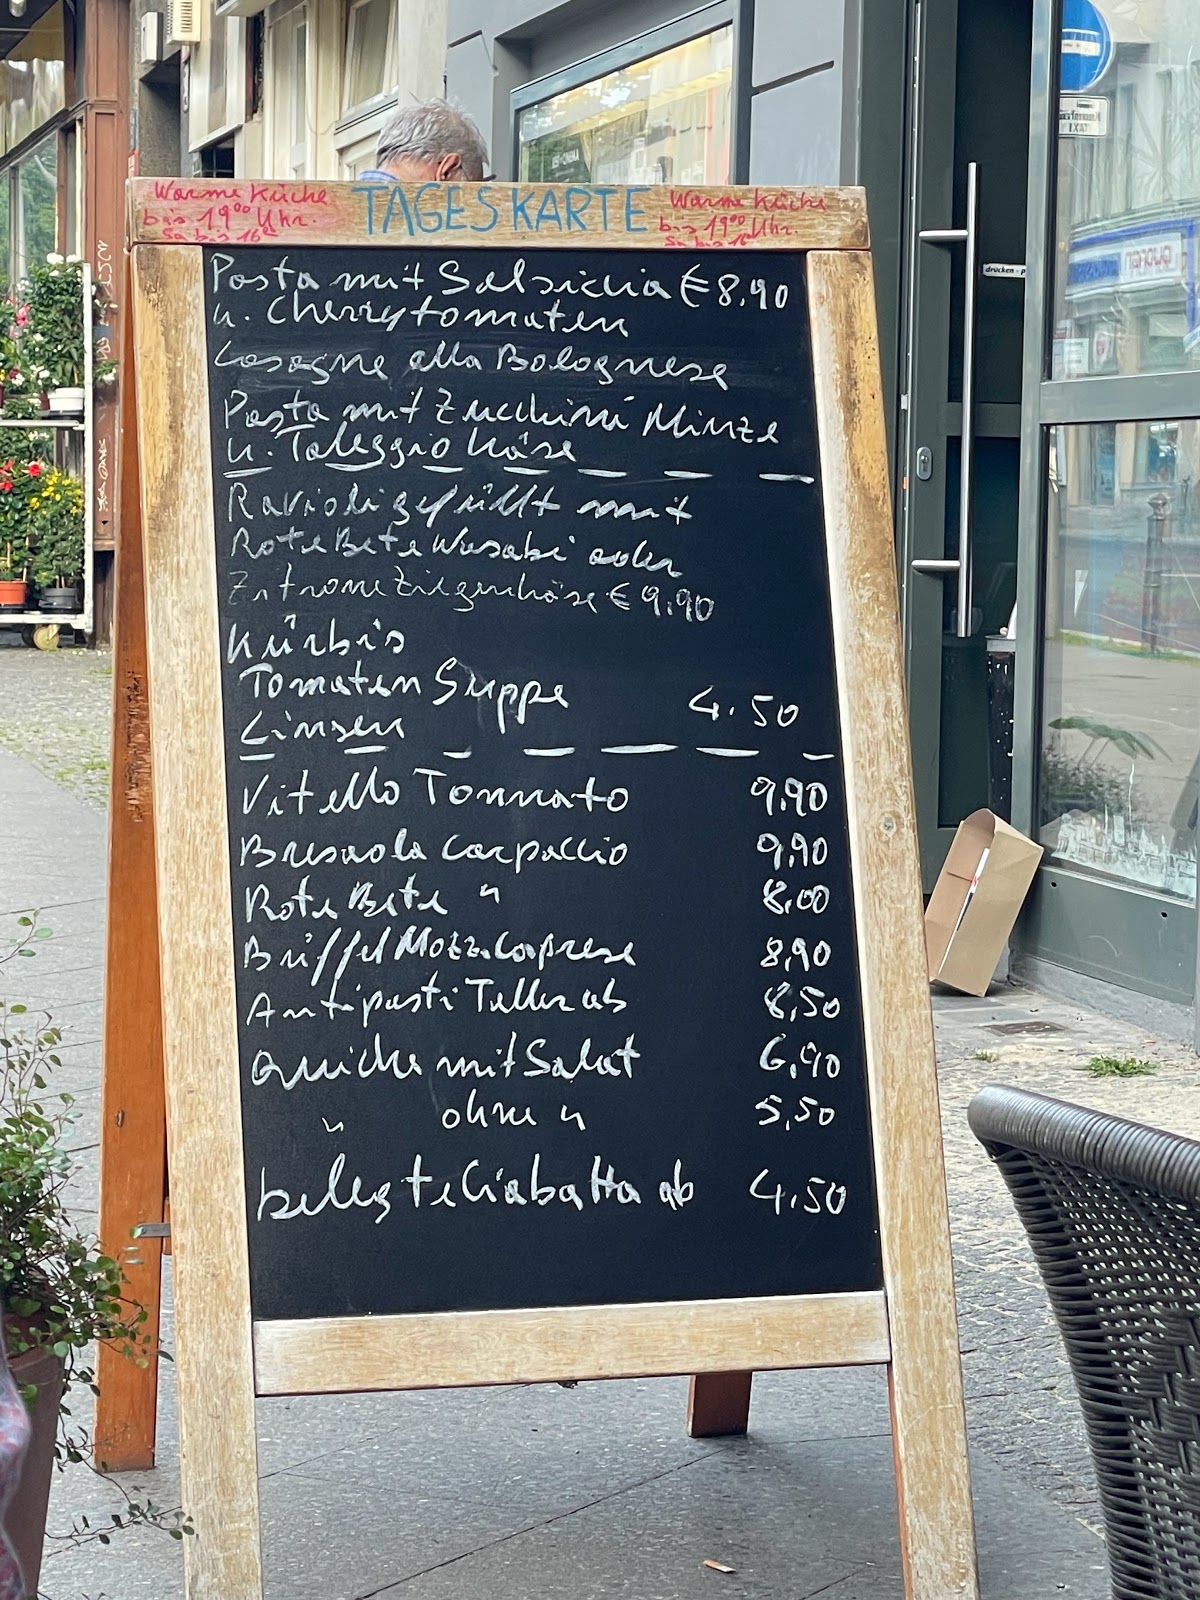 Warme Küche
bis 19⁰⁰ Uhr.
Sa bis 16⁰⁰
TAGESKARTE
Warme Küche
bis 19⁰⁰ Uhr.
Sa bis 16⁰⁰
Pasta mit Salsiccia € 8,90
u. Cherrytomaten
Lasagne alla Bolognese
Pasta mit Zucchini Minze
u. Taleggio Käse
Ravioli gefüllt mit
Rote Bete Wasabi oder
Zitrone Ziegenkäse € 9,90
Kürbis
Tomaten Suppe 4.50
Linsen
Vitello Tonnato 9,90
Bresaola Carpaccio 9,90
Rote Bete " 8,00
Büffel Mozz. Caprese 8,90
Antipasti Teller ab 8,50
Quiche mit Salat 6,90
" ohne " 5,50
belegte Ciabatta ab 4,50
drücken
TAXI